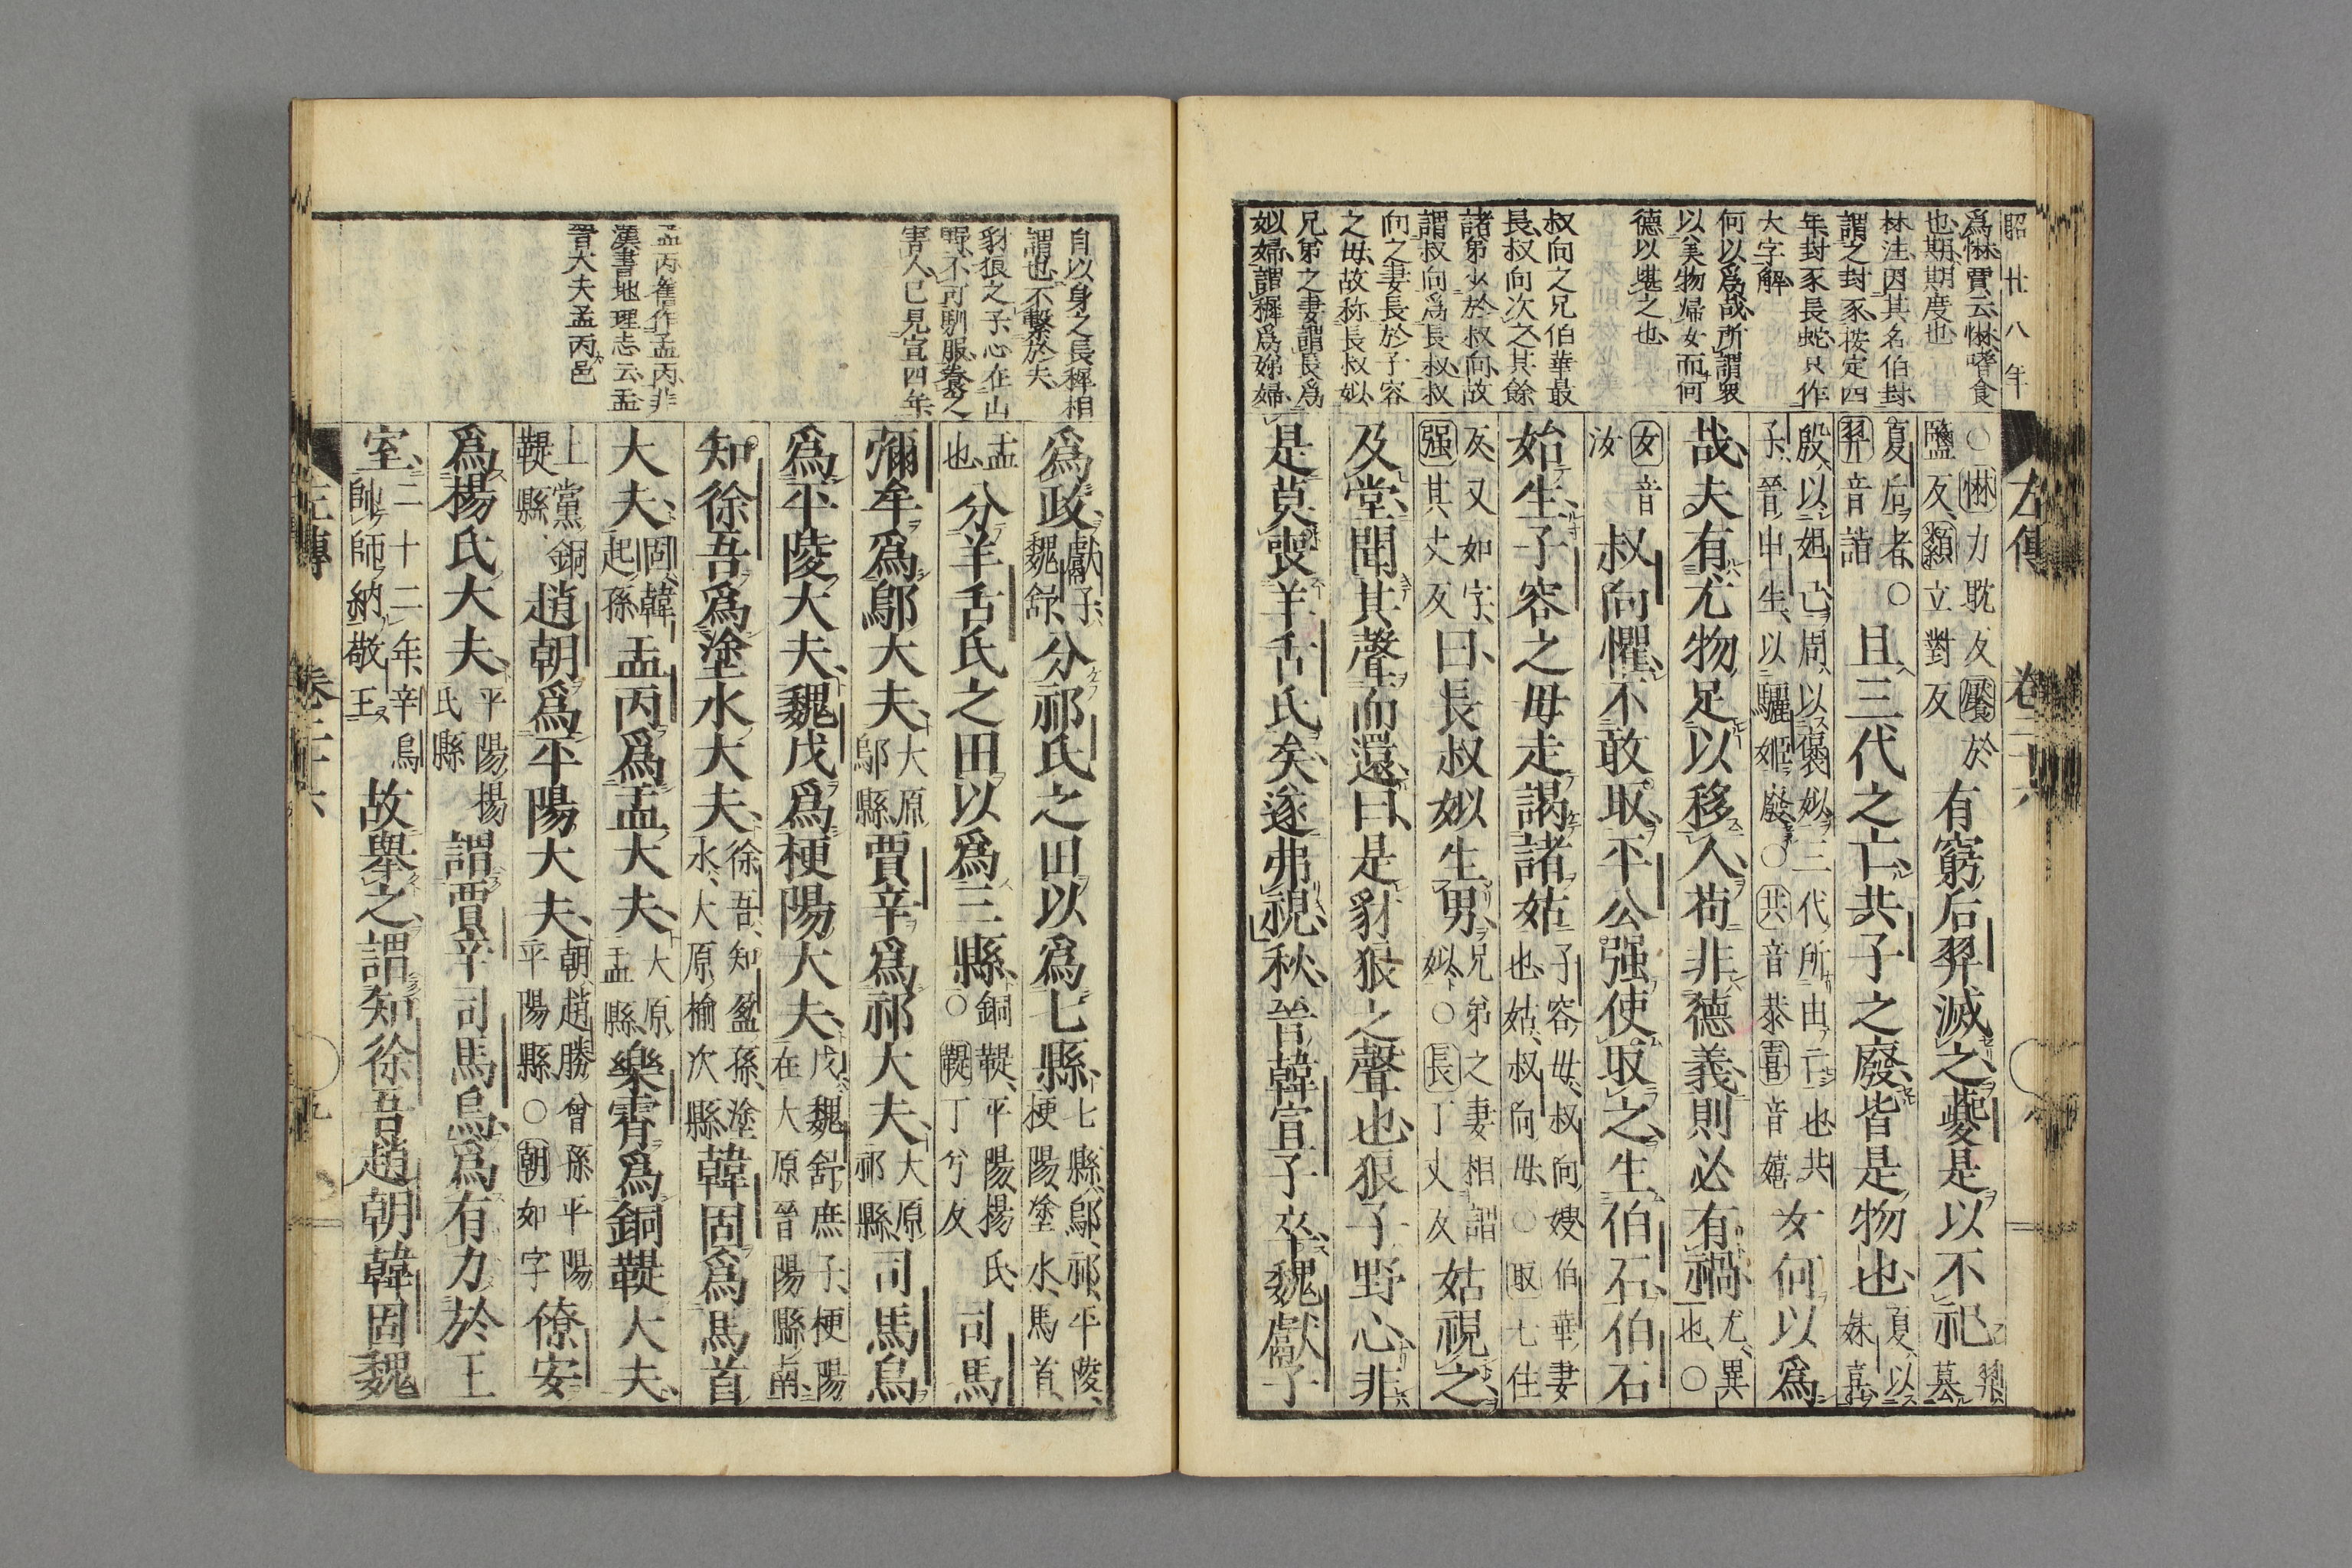 昭廿八年
爲惏賈云惏嗜食
也期期度也
林注因其名伯封
謂之封豕按定四
年封豕長蛇只作
大字解
何以爲哉所謂裂
以美物婦女而何
德以堪之也
叔向之兄伯華最
長叔向次之其餘
諸弟少於叔向故
謂叔向爲長叔叔
向之妻長於子容
之母故称長叔姒
兄弟之妻謂長爲
姒婦謂穉爲娣婦
左傳 卷二十六
○惏力耽反饜於
鹽反纇立對反
有窮后羿滅之夔是以不祀
羿簒
夏后者○
羿音詣
且三代之亡共子之廢皆是物也
夏以
妺喜
殷以妲己周以褒姒三代所由亡也共
子晉申生以驪姬廢○共音恭喜音嬉
女何以爲
哉夫有尤物足以移人苟非德義則必有禍
尤異
也○
女音
汝
叔向懼不敢取平公强使取之生伯石伯石
始生子容之母走謁諸姑
子容母叔向嫂伯華妻
也姑叔向母○取七住
反又如字
强其丈反
曰長叔姒生男
兄弟之妻相謂
姒○長丁丈反
姑視之
及堂聞其聲而還曰是豺狼之聲也狼子野心非
是莫喪羊舌氏矣遂弗視秋晉韓宣子卒魏獻子
自以身之長穉相
謂也不繫於夫
豺狼之子心在山
野不可馴服養之
害人已見宣四年
孟丙舊作盂丙非
漢書地理志云盂
晉大夫孟丙邑
爲政
獻子
魏舒
分祁氏之田以爲七縣
七縣鄔祁平陵
梗陽塗水馬首
盂
也
分羊舌氏之田以爲三縣
銅鞮平陽楊氏
○鞮丁兮反
司馬
彌牟爲鄔大夫
大原
鄔縣
賈辛爲祁大夫
大原
祁縣
司馬烏
爲平陵大夫魏戊爲梗陽大夫
戊魏舒庶子梗陽
在大原晉陽縣南
知徐吾爲塗水大夫
徐吾知盈孫塗
水大原榆次縣
韓固爲馬首
大夫
固韓
起孫
盂丙爲盂大夫
大原
盂縣
樂霄爲銅鞮大夫
上黨銅
鞮縣
趙朝爲平陽大夫
朝趙勝曾孫平陽
平陽縣○朝如字
僚安
爲楊氏大夫
平陽楊
氏縣
謂賈辛司馬烏爲有力於王
室
二十二年辛烏
帥師納敬王
故舉之謂知徐吾趙朝韓固魏
左傳 卷二十六 五